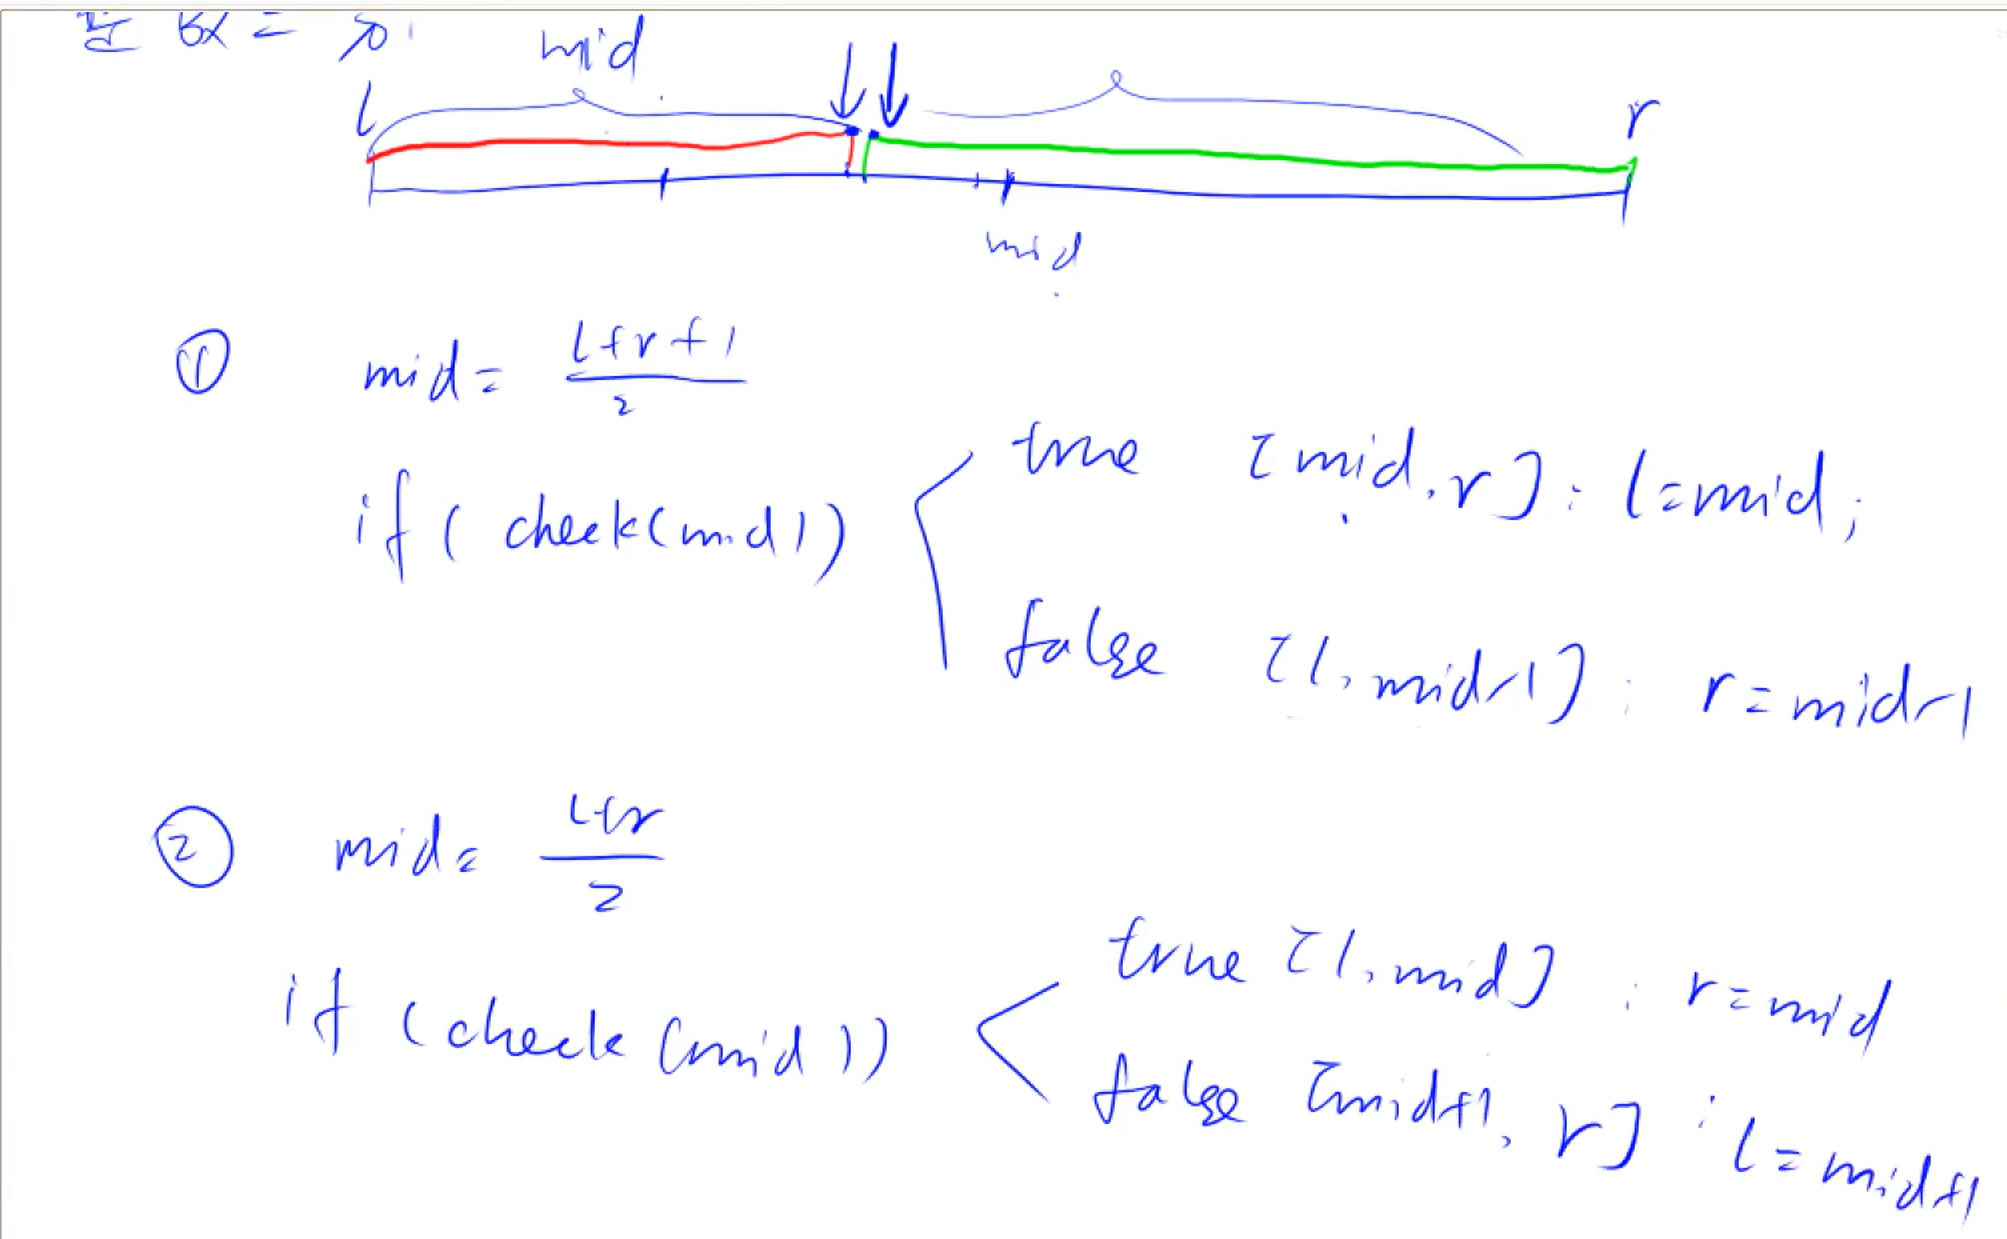 mid
l r
mid
① mid = (l+r+1)/2
if ( check(mid))
true [mid, r] : l=mid;
false [l, mid-1] : r=mid-1
② mid = (l+r)/2
if (check (mid))
true [l, mid] : r=mid
false [mid+1, r] : l=mid+1